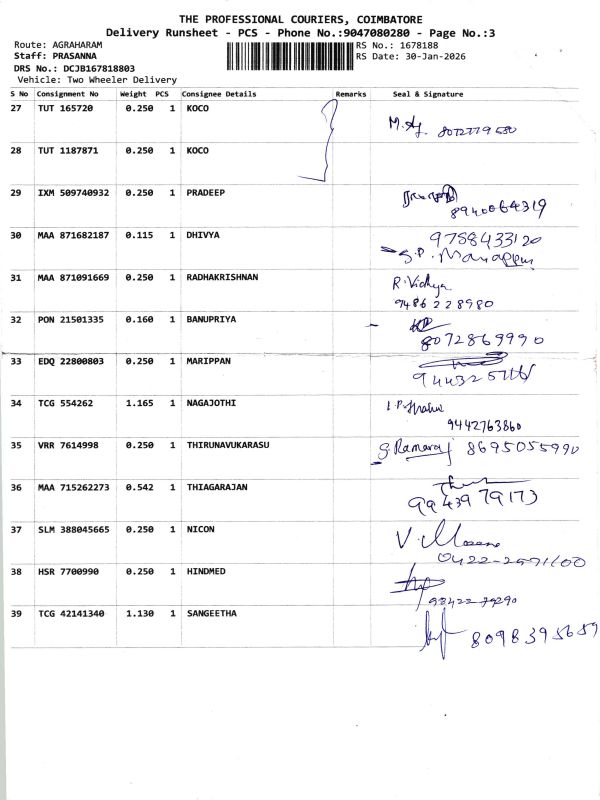 THE PROFESSIONAL COURIERS, COIMBATORE
Delivery Runsheet - PCS - Phone No.:9047080280 - Page No.:3
Route: AGRAHARAM RS No.: 1678188
Staff: PRASANNA RS Date: 30-Jan-2026
DRS No.: DCJB167818803
Vehicle: Two Wheeler Delivery
S No Consignment No Weight PCS Consignee Details Remarks Seal & Signature
27 TUT 165720 0.250 1 KOCO
28 TUT 1187871 KOCO
29 IXM 509740932 0.250 1 PRADEEP
8940064319
30 MAA 871682187 0.115 1 DHIVYA 9788433120
31 MAA 871091669 0.250 1 RADHAKRISHNAN R. Vidhya
9486228980
32 PON 21501335 0.160 1 BANUPRIYA
8072869990
33 EDQ 22800803 0.250 1 MARIPPAN
34 TCG 554262 1.165 1 NAGAJOTHI
9442763860
35 VRR 7614998 0.250 1 THIRUNAVUKARASU G. Ramaraj 8695055990
36 MAA 715262273 0.542 1 THIAGARAJAN
9943979173
37 SLM 388045665 0.250 1 NICON
0422-2571100
38 HSR 7700990 0.250 1 HINDMED
39 TCG 42141340 1.130 1 SANGEETHA
8098395659